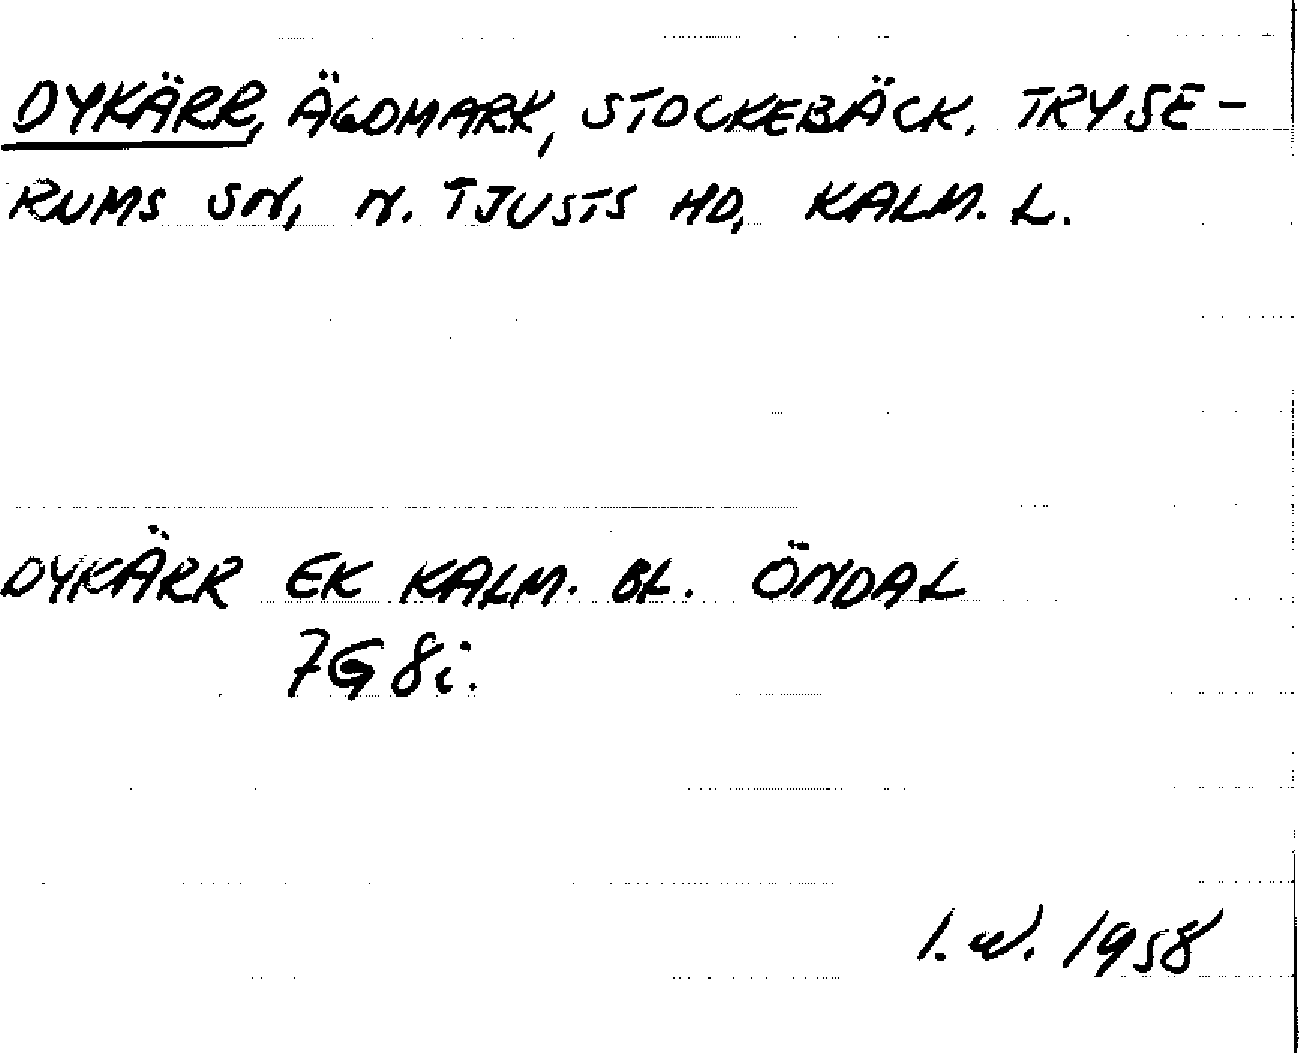 DYKÄRR, ÄGOMARK, STOCKEBÄCK. TRYSE-
RUMS SN, N. TJUSTS HD, KALM. L.
DYKÄRR EK KALM. BL. ÖNDAL
7G 8i.
I. W. 1958